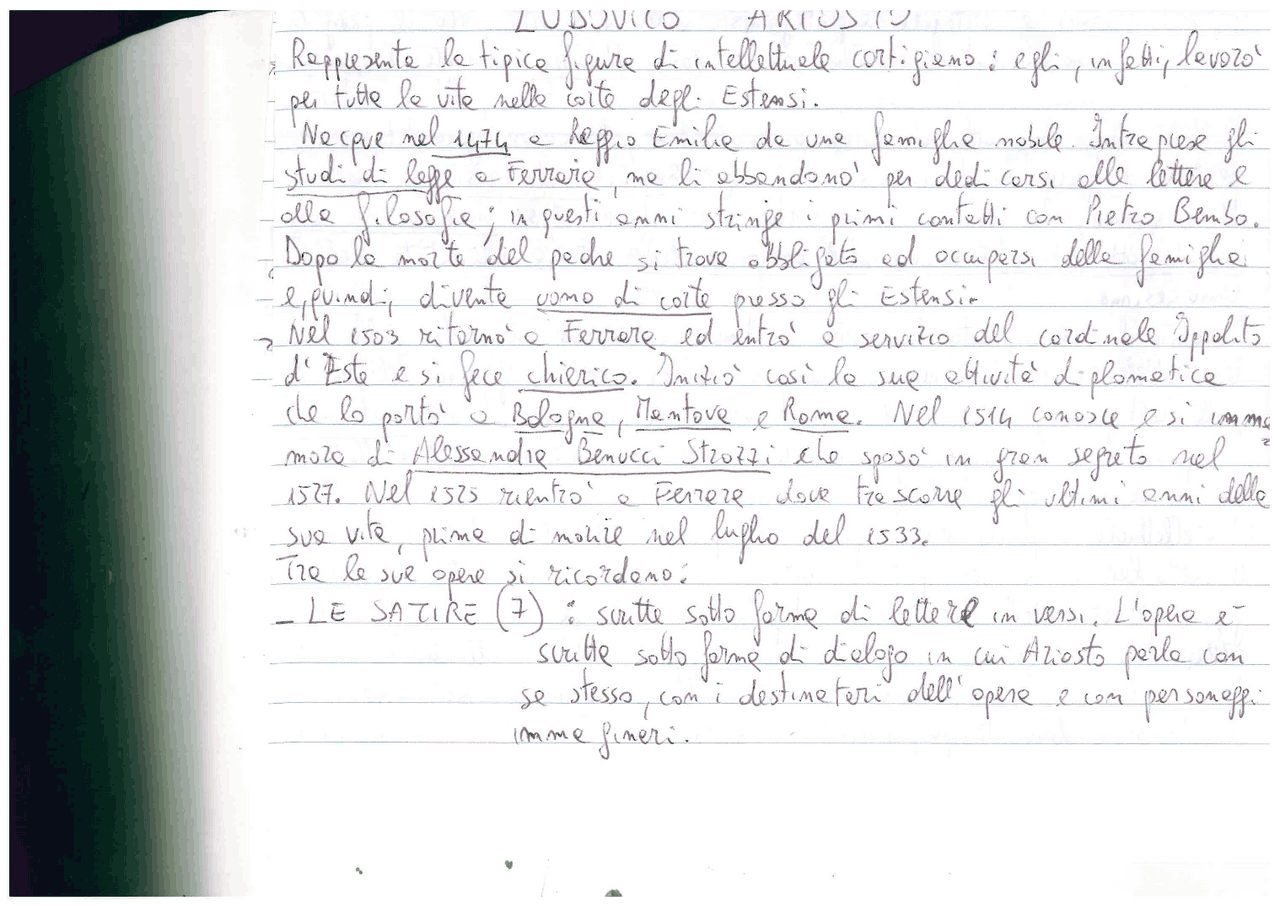 LUDOVICO ARIOSTO
Rappresenta la tipica figura di intellettuale cortigiano: egli, infatti, lavorò
per tutta la vita nella corte degli Estensi.
Nacque nel 1474 a Reggio Emilia da una famiglia nobile. Intraprese gli
studi di legge a Ferrara, ma li abbandonò per dedicarsi alle lettere e
alla filosofia; in questi anni stringe i primi contatti con Pietro Bembo.
Dopo la morte del padre si trova obbligato ad occuparsi della famiglia
e, quindi, diventa uomo di corte presso gli Estensi.
Nel 1503 ritornò a Ferrara ed entrò a servizio del cardinale Ippolito
d'Este e si fece chierico. Iniziò così la sua attività diplomatica
che lo portò a Bologna, Mantova e Roma. Nel 1514 conosce e si inna
mora di Alessandra Benucci Strozzi che sposò in gran segreto nel
1527. Nel 1525 rientrò a Ferrara dove trascorre gli ultimi anni della
sua vita, prima di morire nel luglio del 1533.
Tra le sue opere si ricordano:
- LE SATIRE (7) : scritte sotto forma di lettere in versi. L'opera è
scritta sotto forma di dialogo in cui Ariosto parla con
se stesso, con i destinatari dell'opera e con personaggi
immaginari.